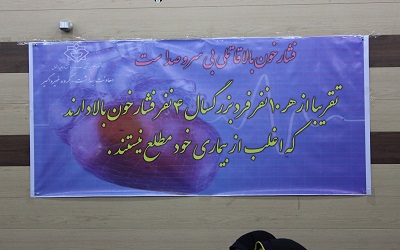 فشار خون بالا قاتلی بی سر و صدا ست
تقریبا از هر ۱۰ نفر فرد بزرگسال ۴ نفر فشار خون بالا دارند
که اغلب از بیماری خود مطلع نیستند.